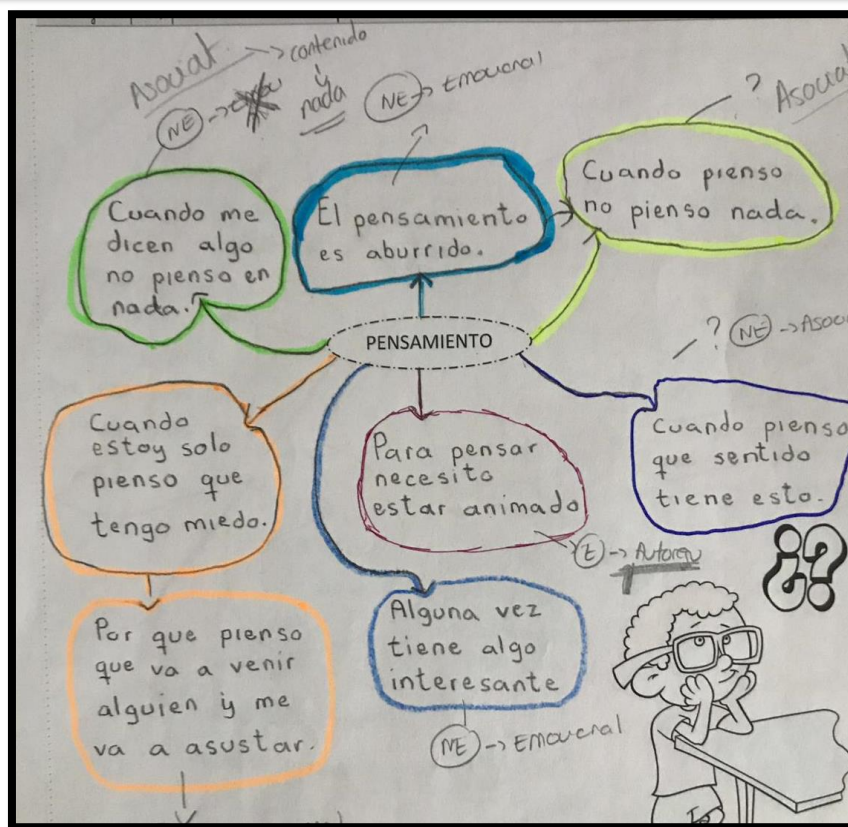 Asociat. -> contenido
y
nada
NE ->
NE -> Emocional
? Asociat
Cuando me
dicen algo
no pienso en
nada.
El pensamiento
es aburrido.
Cuando pienso
no pienso nada.
PENSAMIENTO
? NE -> Asoc
Cuando
estoy solo
pienso que
tengo miedo.
Para pensar
necesito
estar animado
Cuando pienso
que sentido
tiene esto.
E -> Autoregu
¿?
Por que pienso
que va a venir
alguien y me
va a asustar.
Alguna vez
tiene algo
interesante
NE -> Emocional